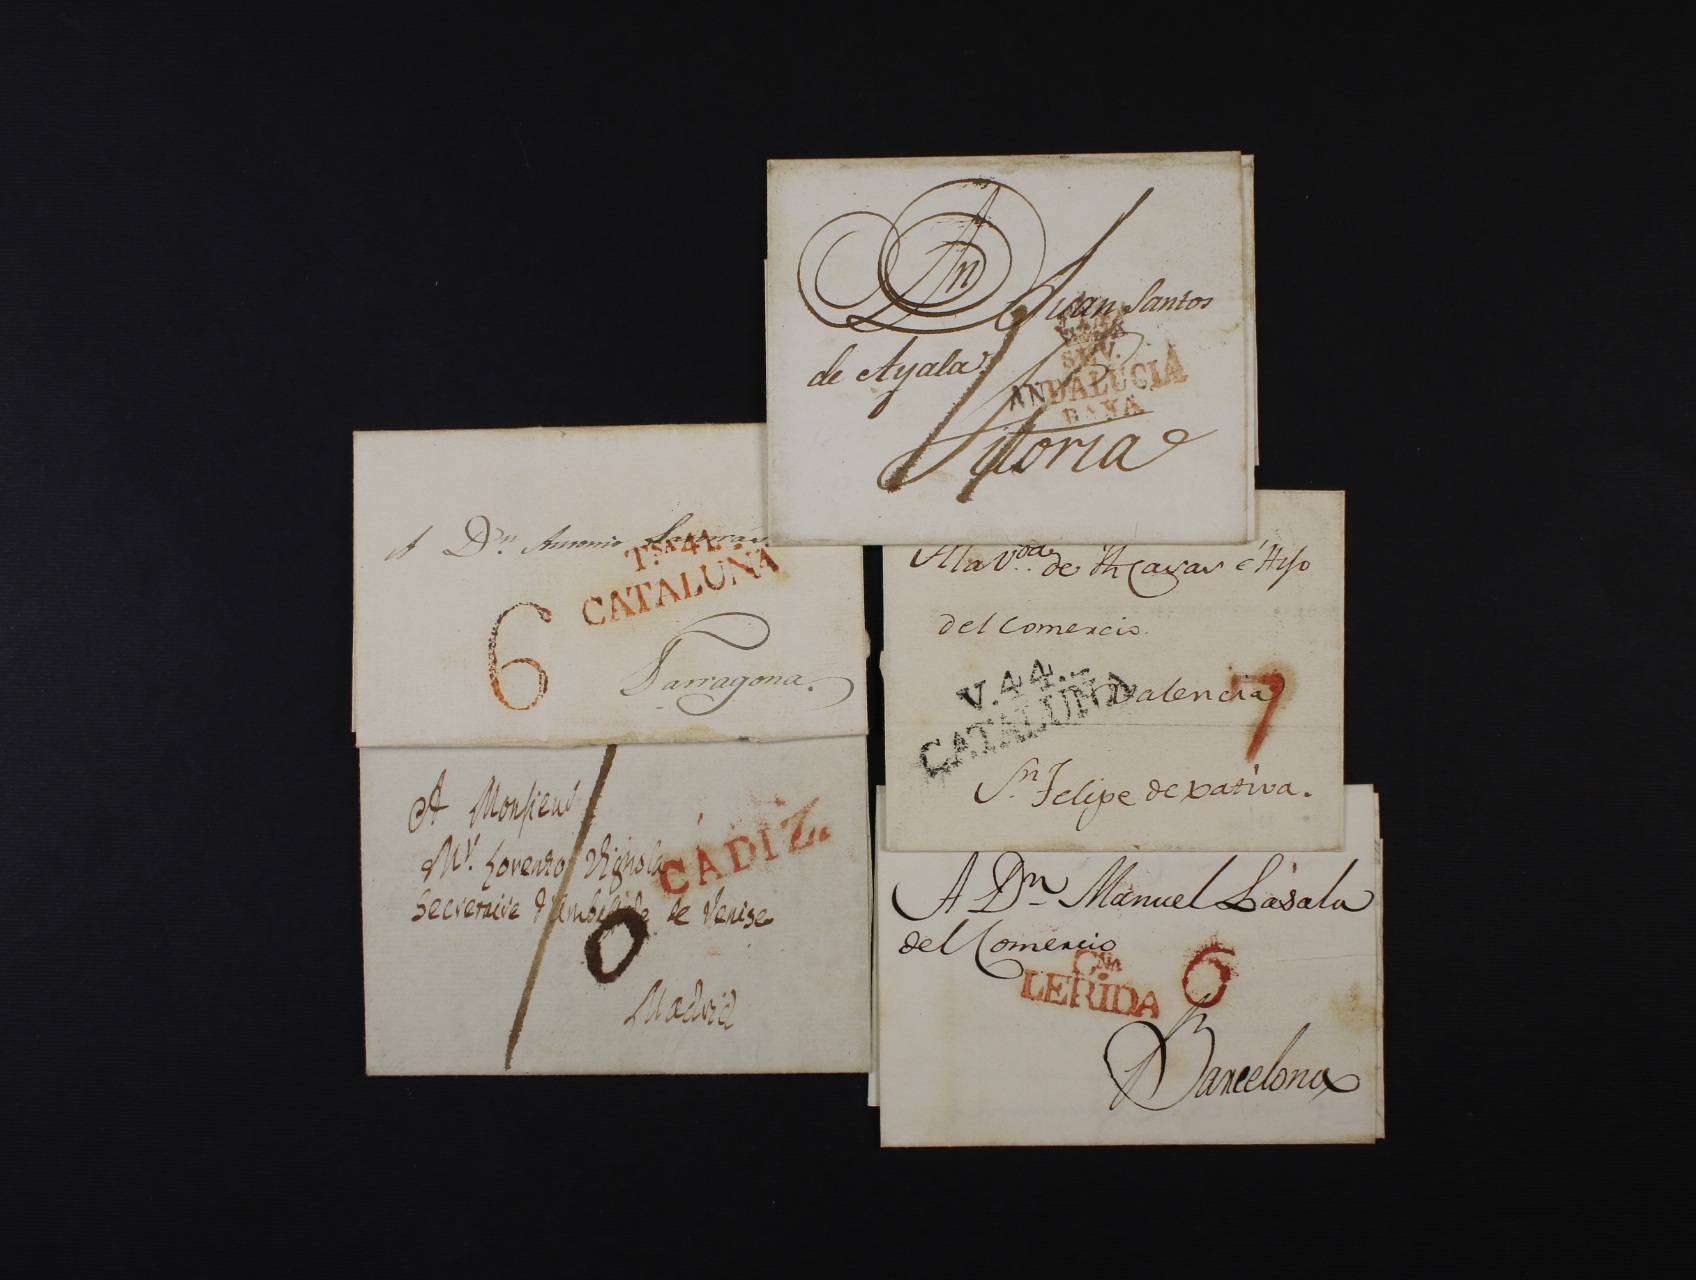 A Dn
Juan Santos
de Ayala
SEV.
ANDALUCIA
BAXA
Vitoria
A Dn Antonio
TSA 41.
CATALUÑA
6
Tarragona.
A la Vda. de
é Hijo
del Comercio.
V. 44.
CATALUÑA
Valencia
7
Sn Felipe de Xativa.
A Monsieur
Mr. Lorenzo Vignola
CADIZ.
Secretaire d'Ambassade de Venise
Madrid
A Dn Manuel Lásala
del Comercio
CNA
LERIDA
6
Barcelona